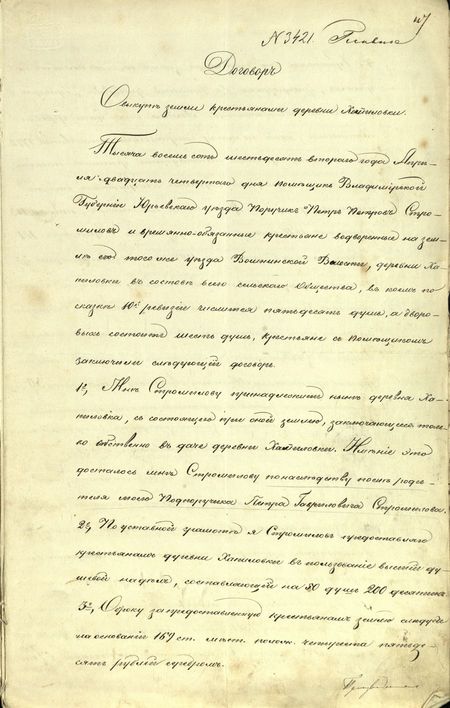 N 3421.
Договоръ
О выкупѣ земли крестьянами деревни Хатиловки.
Тысяча восемь сотъ шестьдесятъ втораго года Апрѣ-
ля двадцать четвертаго дня помѣщикъ Владимірской
Губерніи Юрьевскаго уѣзда Поручикъ Петръ Петровъ Стро-
миловъ и временно-обязанные крестьяне водворенные на зем-
лѣ его того же уѣзда Волости, деревни Ха-
тиловки въ составѣ всего сельскаго Общества, въ коемъ по
сказкѣ 10й ревизіи числится пятьдесятъ душъ, а дворо-
выхъ состоитъ шесть душъ, крестьяне съ помѣщикомъ
заключили слѣдующій договоръ.
1е, Мнѣ Стромилову принадлежитъ нынѣ деревня Ха-
тиловка, съ состоящею при оной землею, заключающеюся толь-
ко собственно въ дачѣ деревни Хатиловки. Имѣніе это
досталось мнѣ Стромилову по наслѣдству послѣ роди-
теля моего Подпоручика Петра Гавриловича Стромилова.
2е, По уставной грамотѣ я Стромиловъ предоставляю
крестьянамъ деревни Хатиловки въ пользованіе высшій ду-
шевой надѣлъ, составляющій на 50 душъ 200 десятинъ
3е, Оброку за предоставленную крестьянамъ землю слѣдуетъ
на основаніи 169 ст. мѣст. полож. четыреста пятьде-
сятъ рублей серебромъ.